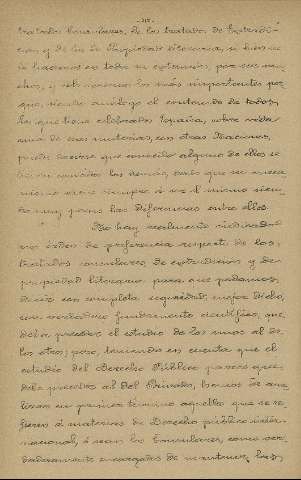 tratados Consulares, de los tratados de Extradi-
ción y de los de Propiedad literaria, si bien no
lo haremos en todos su extensión, por ser mu-
chos, y sí de los más importantes por
que, siendo análogo el contenido de todos,
los que tiene celebrados España, sobre cada
una de esas materias, con otras Naciones,
puede decirse que conocido alguno de ellos se
los demás, dado que su meca-
nismo viene siempre a ser el mismo sien-
do muy pocas las diferencias entre ellos.
No hay realmente
un orden de preferencia respecto de los
tratados consulares, de extradición y de
propiedad literaria para que podamos
decir con completa seguridad, mejor dicho,
con verdadero fundamento científico, que
deba preceder el estudio de los unos al de
los otros; pero, teniendo en cuenta que el
estudio del Derecho Público parece que
debe preceder al del Privado, hemos de ana-
lizar en primer término aquellos que se re-
fieren á materias de Derecho público inter-
nacional, ó sean los Consulares, como ver-
daderamente encargados de mantener las